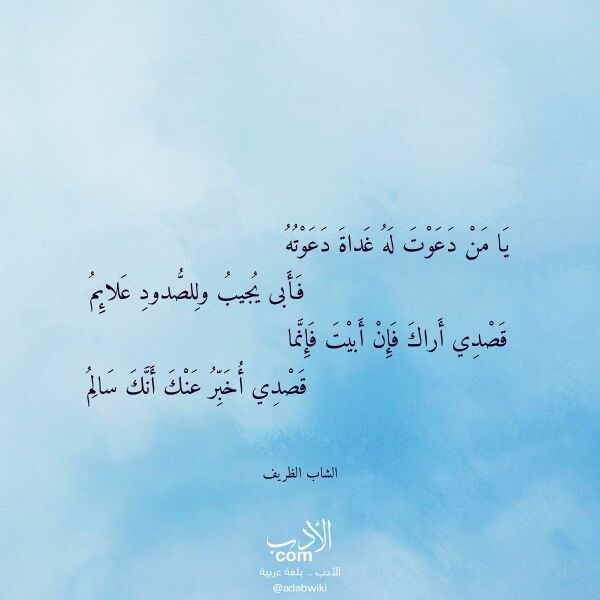 يَا مَنْ دَعَوْتَ لَهُ غَداةَ دَعَوْتُهُ
فَأَبى يُجيبُ ولِلصُّدودِ عَلايِمُ
قَصْدِي أَراكَ فَإِنْ أَبيْتَ فَإِنَّما
قَصْدِي أُخَبِّرُ عَنْكَ أَنَّكَ سَالِمُ
الشاب الظريف
الأدب
com
الأدب .. بلغة عربية
@adabwiki